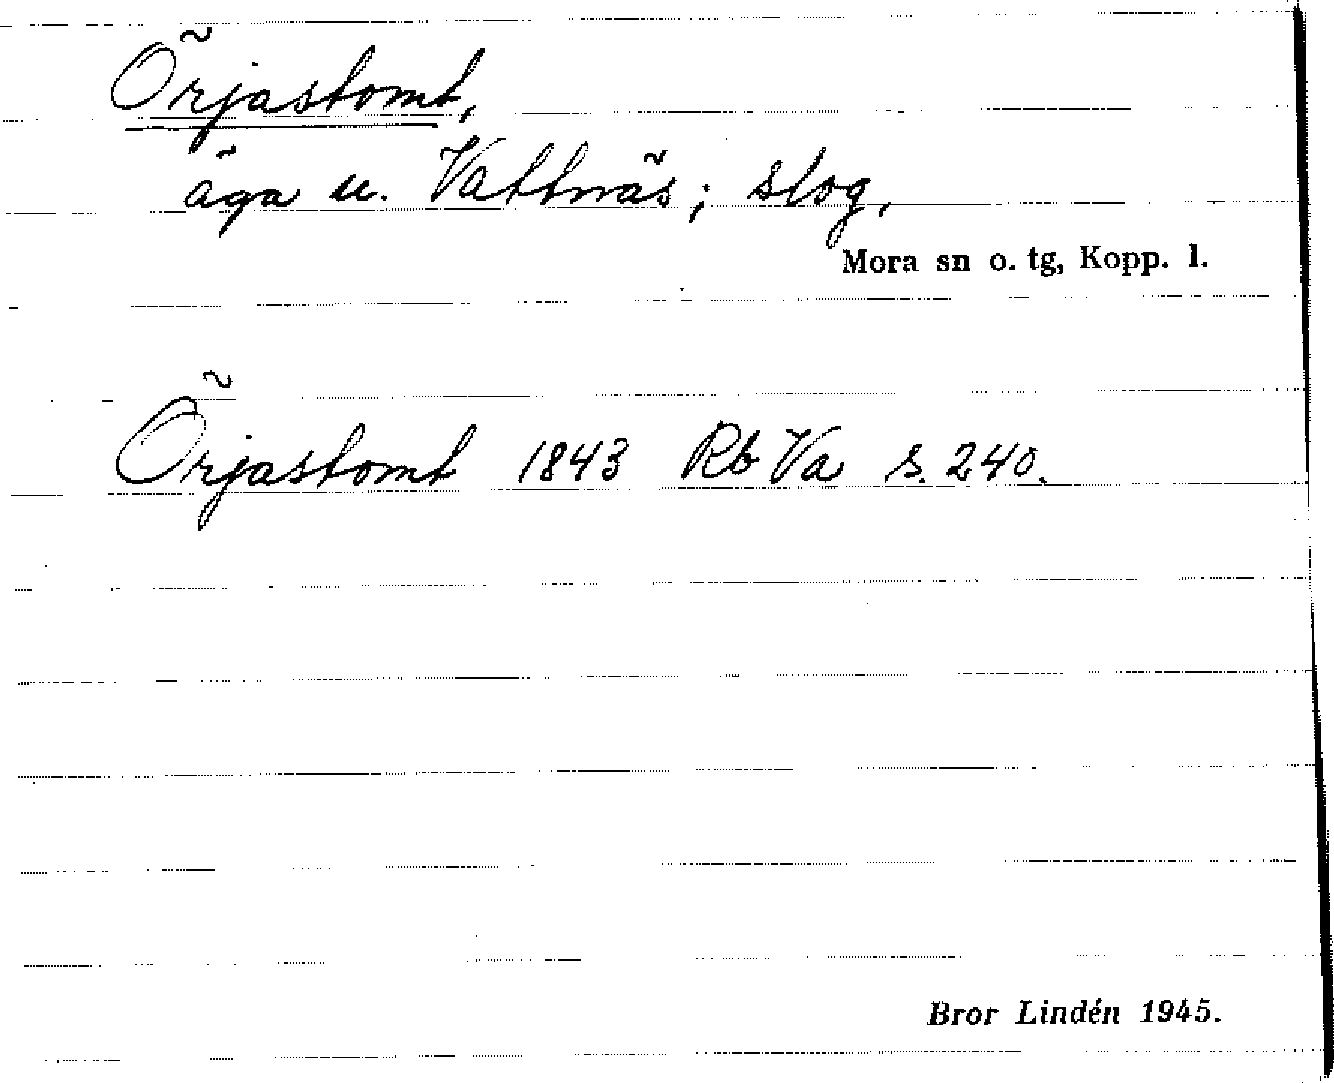 Örjastomt,
äga u. Vattnäs; slog,
Mora sn o. tg, Kopp. l.
Örjastomt 1843 Rb Va s. 240.
Bror Lindén 1945.